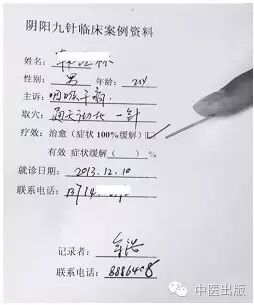 阴阳九针临床案例资料
姓名:
性别: 男 年龄: 21y
主诉: 咽喉干痛
取穴: 通天动地 一针
疗效: 治愈 (症状100%缓解) (✓)
有效 症状缓解 ( ) %
就诊日期: 2013.12.10
联系电话: 13714
记录者:
联系电话: 8886408
中医出版